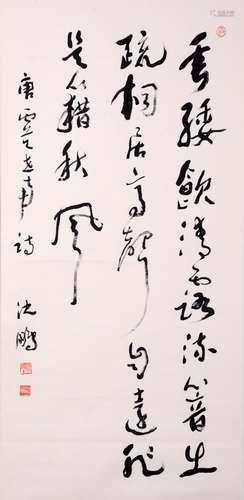 垂緌飲清露流響出
疏桐居高聲自遠非
是藉秋風
唐虞世南詩
沈鵬